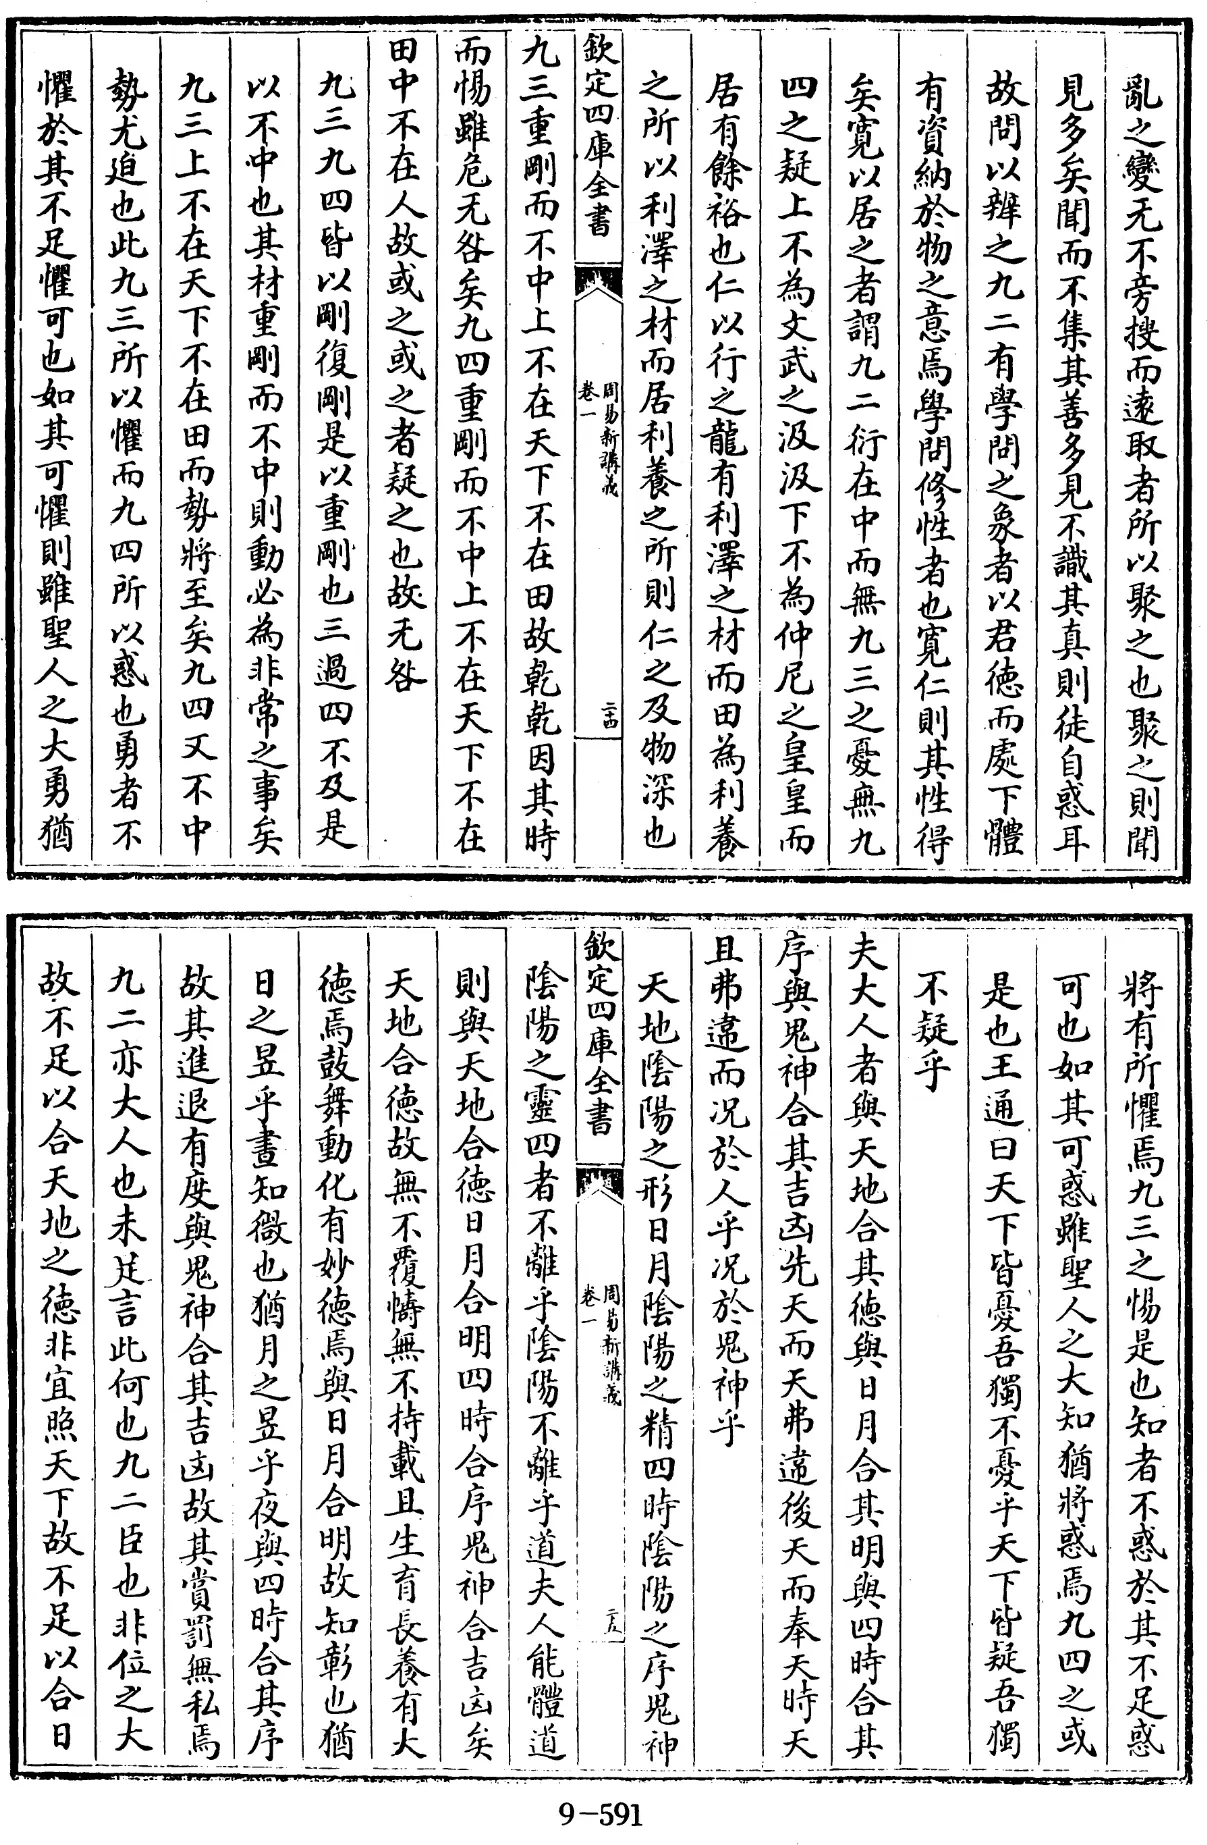 亂之變无不旁搜而遠取者所以聚之也聚之則聞
見多矣聞而不集其善多見不識其真則徒自惑耳
故問以辨之九二有學問之象者以君徳而處下體
有資納於物之意焉學問修性者也寛仁則其性得
矣寛以居之者謂九二衍在中而無九三之憂無九
四之疑上不為文武之汲汲下不為仲尼之皇皇而
居有餘裕也仁以行之龍有利澤之材而田為利養
之所以利澤之材而居利養之所則仁之及物深也
欽定四庫全書
周易新講義
卷一
二十四
九三重剛而不中上不在天下不在田故乾乾因其時
而惕雖危无咎矣九四重剛而不中上不在天下不在
田中不在人故或之或之者疑之也故无咎
九三九四皆以剛復剛是以重剛也三過四不及是
以不中也其材重剛而不中則動必為非常之事矣
九三上不在天下不在田而勢將至矣九四又不中
勢尤迫也此九三所以懼而九四所以惑也勇者不
懼於其不足懼可也如其可懼則雖聖人之大勇猶
將有所懼焉九三之惕是也知者不惑於其不足惑
可也如其可惑雖聖人之大知猶將惑焉九四之或
是也王通曰天下皆憂吾獨不憂乎天下皆疑吾獨
不疑乎
夫大人者與天地合其徳與日月合其明與四時合其
序與鬼神合其吉凶先天而天弗違後天而奉天時天
且弗違而况於人乎况於鬼神乎
天地陰陽之形日月陰陽之精四時陰陽之序鬼神
欽定四庫全書
周易新講義
卷一
二十五
陰陽之靈四者不離乎陰陽不離乎道夫人能體道
則與天地合徳日月合明四時合序鬼神合吉凶矣
天地合徳故無不覆幬無不持載且生育長養有大
徳焉鼓舞動化有妙徳焉與日月合明故知彰也猶
日之昱乎晝知微也猶月之昱乎夜與四時合其序
故其進退有度與鬼神合其吉凶故其賞罰無私焉
九二亦大人也未足言此何也九二臣也非位之大
故不足以合天地之徳非宜照天下故不足以合日
9-591